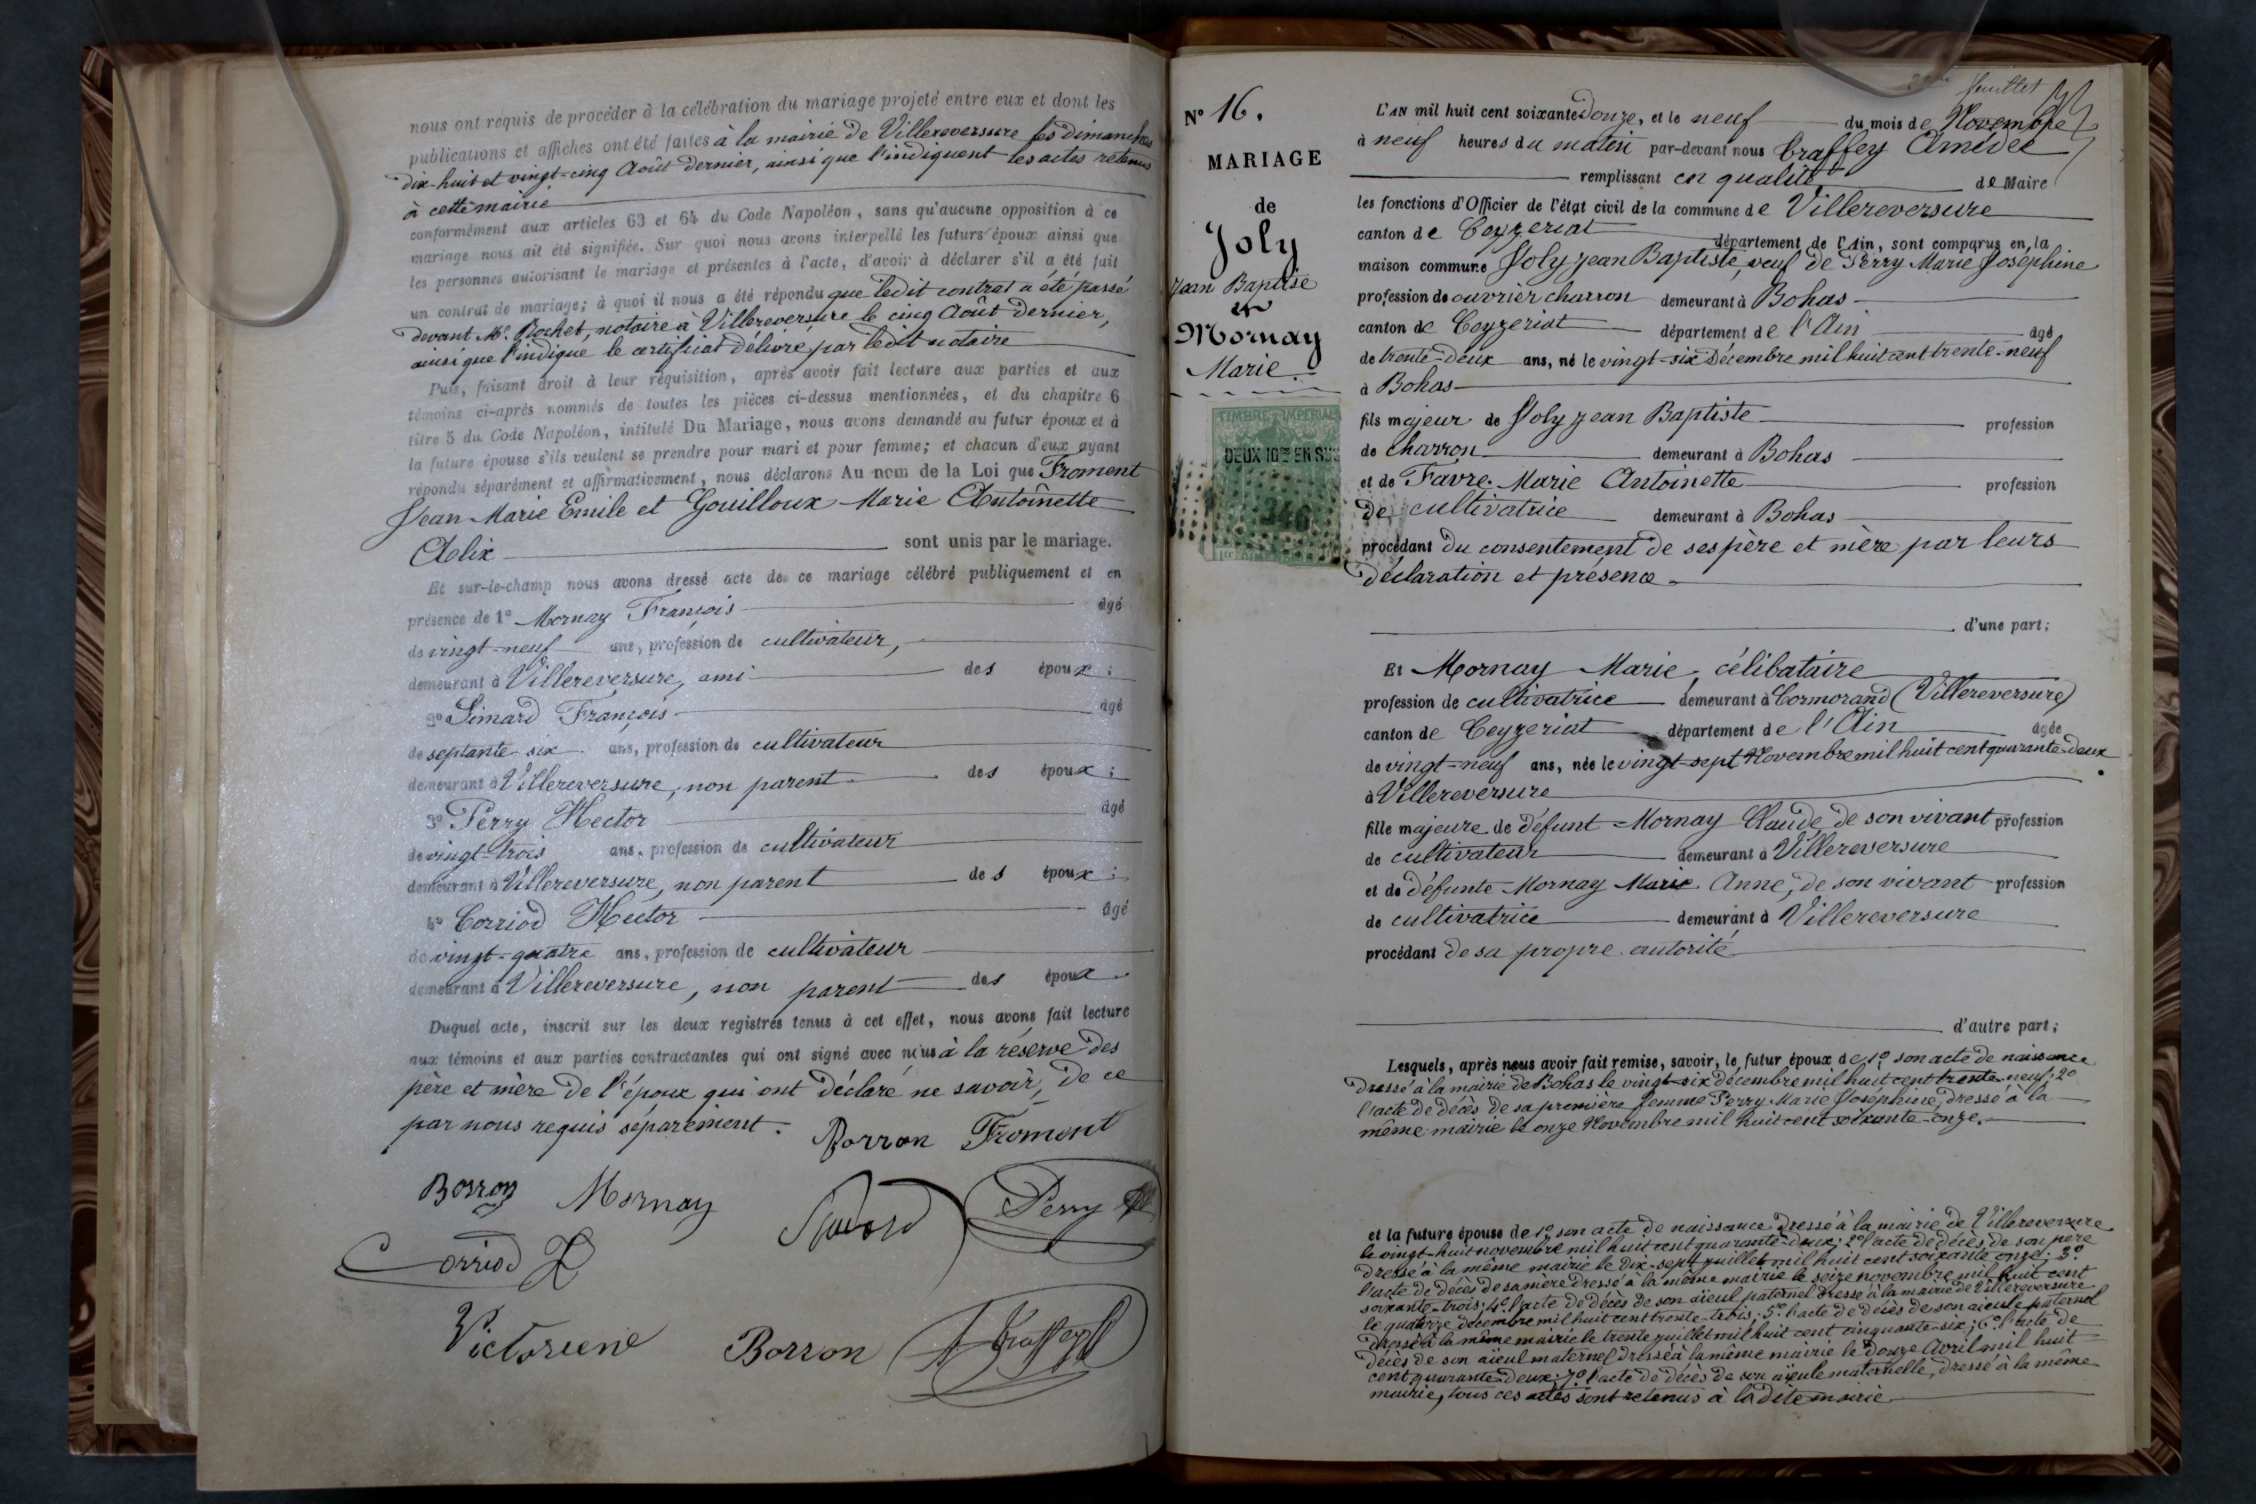 nous ont requis de procéder à la célébration du mariage projeté entre eux et dont les
publications et affiches ont été faites à la mairie de Villereversure les dimanches
dix-huit et vingt-cinq Août dernier, ainsi que l'indiquent les actes retenus
à cette mairie
conformément aux articles 63 et 64 du Code Napoléon, sans qu'aucune opposition à ce
mariage nous ait été signifiée. Sur quoi nous avons interpellé les futurs époux ainsi que
les personnes autorisant le mariage et présentes à l'acte, d'avoir à déclarer s'il a été fait
un contrat de mariage; à quoi il nous a été répondu que ledit contrat a été passé
devant Me. Rochet, notaire à Villereversure le cinq Août dernier,
ainsi que l'indique le certificat délivré par ledit notaire
Puis, faisant droit à leur réquisition, après avoir fait lecture aux parties et aux
témoins ci-après nommés de toutes les pièces ci-dessus mentionnées, et du chapitre 6
titre 5 du Code Napoléon, intitulé Du Mariage, nous avons demandé au futur époux et à
la future épouse s'ils veulent se prendre pour mari et pour femme; et chacun d'eux ayant
répondu séparément et affirmativement, nous déclarons Au nom de la Loi que Froment
Jean Marie Emile et Gouilloux Marie Antoinette
Alix sont unis par le mariage.
Et sur-le-champ nous avons dressé acte de ce mariage célébré publiquement et en
présence de 1° Mornay François âgé
de vingt-neuf ans, profession de cultivateur,
demeurant à Villereversure, ami des époux;
2° Simard François âgé
de septante six ans, profession de cultivateur
demeurant à Villereversure, non parent des époux;
3° Perry Hector âgé
de vingt-trois ans, profession de cultivateur
demeurant à Villereversure, non parent des époux;
4° Corriod Hector âgé
de vingt-quatre ans, profession de cultivateur
demeurant à Villereversure, non parent des époux.
Duquel acte, inscrit sur les deux registres tenus à cet effet, nous avons fait lecture
aux témoins et aux parties contractantes qui ont signé avec nous à la réserve des
père et mère de l'époux qui ont déclaré ne savoir, de ce
par nous requis séparément. Borron Froment
Borron Mornay Perry
Corriod
Victorine Borron
feuillet
N° 16.
MARIAGE
de
Joly
Jean Baptise
et
Mornay
Marie
TIMBRE IMPERIAL
DEUX 10mes EN SUS
L'AN mil huit cent soixante Douze, et le neuf du mois de Novembre
à neuf heures du matin par-devant nous Craffey Amédée
remplissant en qualité de Maire
les fonctions d'Officier de l'état civil de la commune de Villereversure
canton de Ceyzeriat département de l'Ain, sont comparus en la
maison commune Joly Jean Baptiste, veuf de Perry Marie Joséphine
profession de ouvrier charron demeurant à Bohas
canton de Ceyzeriat département de l'Ain âgé
de trente-deux ans, né le vingt-six Décembre mil huit cent trente-neuf
à Bohas
fils majeur de Joly Jean Baptiste profession
de charron demeurant à Bohas
et de Favre Marie Antoinette profession
de cultivatrice demeurant à Bohas
procédant du consentement de ses père et mère par leurs
déclaration et présence
d'une part;
Et Mornay Marie, célibataire
profession de cultivatrice demeurant à Cormorand (Villereversure)
canton de Ceyzeriat département de l'Ain âgée
de vingt-neuf ans, née le vingt-sept Novembre mil huit cent quarante-deux
à Villereversure
fille majeure de défunt Mornay Claude, de son vivant profession
de cultivateur demeurant à Villereversure
et de défunte Mornay Marie Anne, de son vivant profession
de cultivatrice demeurant à Villereversure
procédant de sa propre autorité
d'autre part;
Lesquels, après nous avoir fait remise, savoir, le futur époux de 1° son acte de naissance
dressé à la mairie de Bohas le vingt-six décembre mil huit cent trente-neuf; 2°
l'acte de décès de sa première femme Perry Marie Joséphine, dressé à la
même mairie le onze Novembre mil huit cent soixante-onze.
et la future épouse de 1° son acte de naissance dressé à la mairie de Villereversure
le vingt-huit novembre mil huit cent quarante-deux; 2° l'acte de décès de son père
dressé à la même mairie le dix-sept juillet mil huit cent soixante onze; 3°
l'acte de décès de sa mère dressé à la même mairie le seize novembre mil huit cent
soixante-trois; 4° l'acte de décès de son aïeul paternel dressé à la mairie de Villereversure
le quatorze décembre mil huit cent trente-trois; 5° l'acte de décès de son aieule paternel
dressé à la même mairie le trente juillet mil huit cent cinquante-six; 6° l'acte de
décès de son aïeul maternel dressé à la même mairie le douze Avril mil huit
cent quarante-deux; 7° l'acte de décès de son aïeule maternelle, dressé à la même
mairie, tous ces actes sont retenus à la dite mairie